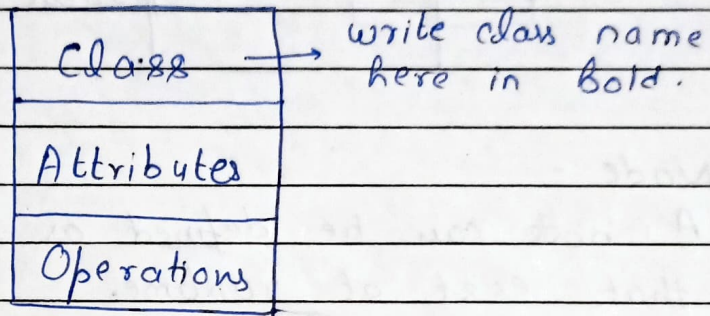 Class → write class name
here in Bold.
Attributes
Operations